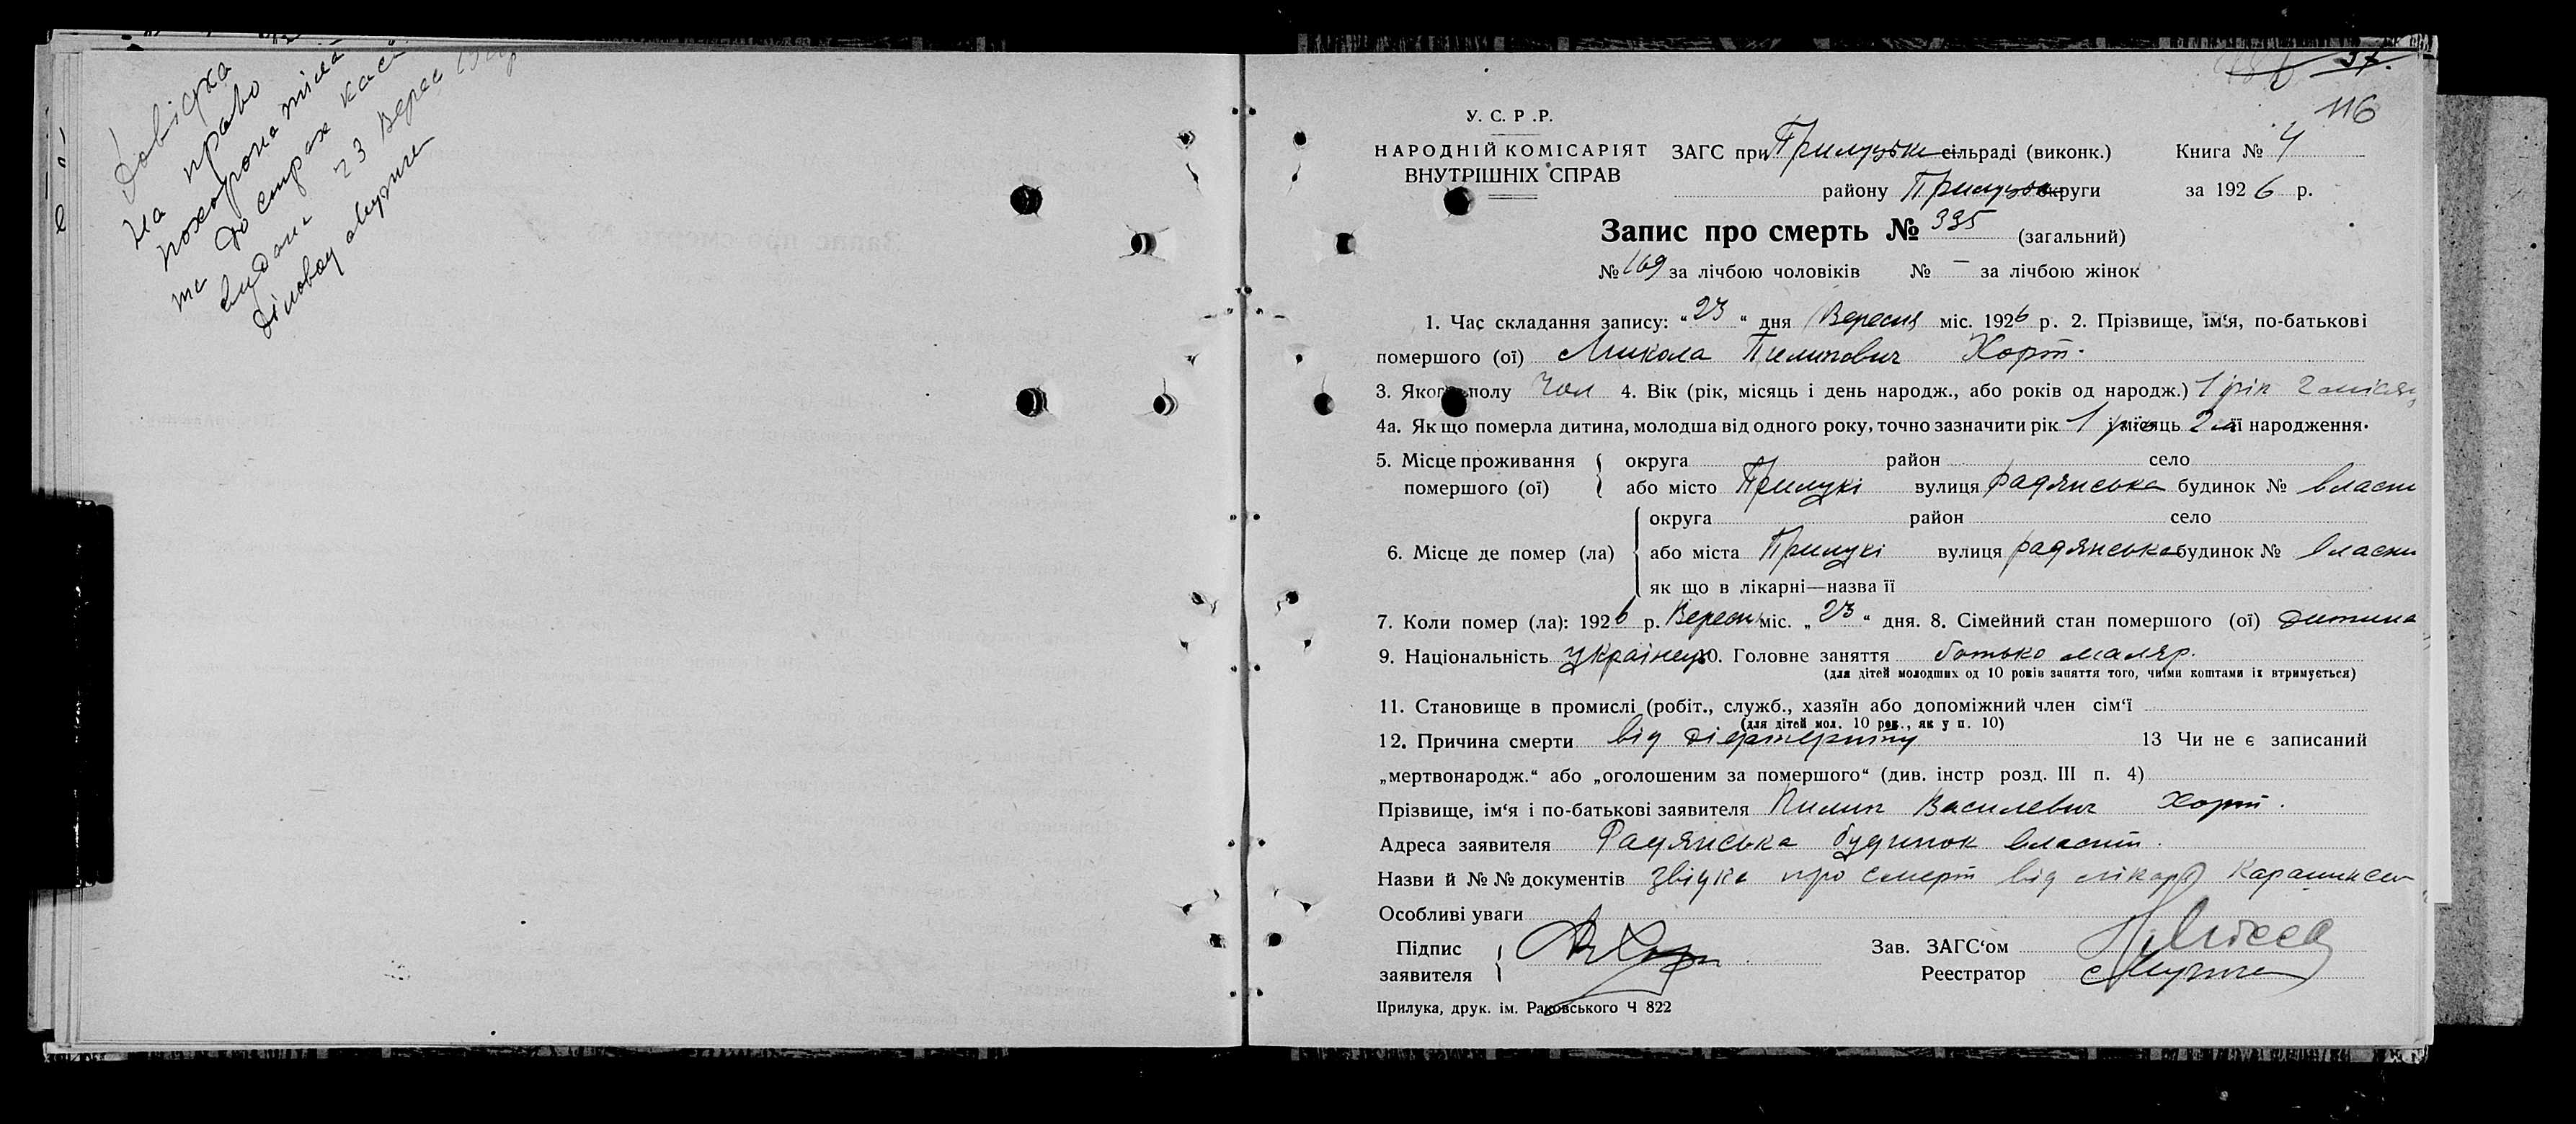 Довідка
на право
похорона тіла
та до страх каси
видана 23 Верес
діловод
37.
116
У. С. Р. Р.
НАРОДНІЙ КОМІСАРІЯТ
ВНУТРІШНІХ СПРАВ
ЗАГС при Прилуцьки сільраді (виконк.) Книга № 4
району Прилуцька округи за 1926 р.
Запис про смерть № 335 (загальний)
№ 169 за лічбою чоловіків № — за лічбою жінок
1. Час складання запису: “23“ дня Вересня міс. 1926 р. 2. Прізвище, ім‘я, по-батькові
помершого (ої) Микола Пилипович Хорт.
3. Якого полу Чол 4. Вік (рік, місяць і день народж., або років од народж.) 1 рік 2 місяц
4а. Як що померла дитина, молодша від одного року, точно зазначити рік 1 рік і місяць 2 м її народження.
5. Місце проживання помершого (ої) { округа район село
або місто Прилукі вулиця радянська будинок № власни
6. Місце де помер (ла) { округа район село
або міста Прилукі вулиця радянська будинок № власни
як що в лікарні—назва її
7. Коли помер (ла): 1926 р. Вересн міс. „23“ дня. 8. Сімейний стан помершого (ої) дитина
9. Національність українець 10. Головне заняття батько маляр.
(для дітей молодших од 10 років заняття того, чиїми коштами їх втримується)
11. Становище в промислі (робіт., служб., хазяїн або допоміжний член сім‘ї
(для дітей мол. 10 рок., як у п. 10)
12. Причина смерти від діфтерніту 13 Чи не є записаний
„мертвонародж.“ або „оголошеним за помершого“ (див. інстр розд. III п. 4)
Прізвище, ім‘я і по-батькові заявителя Пилип Василевич Хорт.
Адреса заявителя Радянська будинок власний.
Назви й №№ документів Звідка про смерт від лікаря
Особливі уваги
Підпис заявителя { Хорт
Зав. ЗАГС‘ом
Реестратор
Прилука, друк. ім. Раковського Ч 822